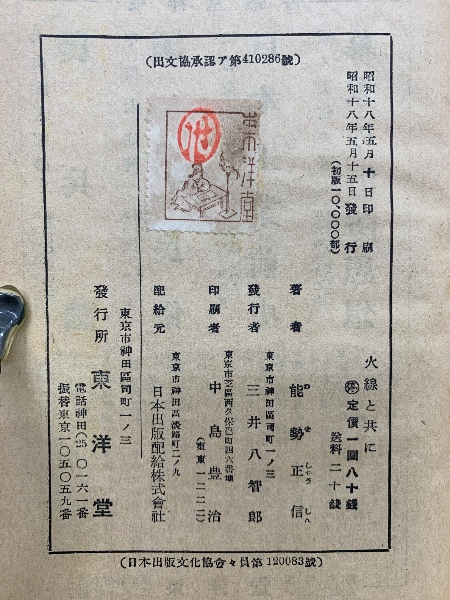 (出文協承認ア第410286號)
昭和十八年五月十日印刷
昭和十八年五月十五日發行
(初版一〇、〇〇〇部)
火線と共に
定價一圓八十錢
送料二十錢
著者 能勢正信
東京市神田區司町一ノ三
發行者 三井八智郎
東京市芝區西久保巴町四六番地
印刷者 中島豊治
(東東一二二二)
東京市神田區淡路町二ノ九
配給元 日本出版配給株式會社
東京市神田區司町一ノ三
發行所 東洋堂
電話神田(25)〇一六一番
振替東京一〇五〇五九番
(日本出版文化協會々員第120083號)